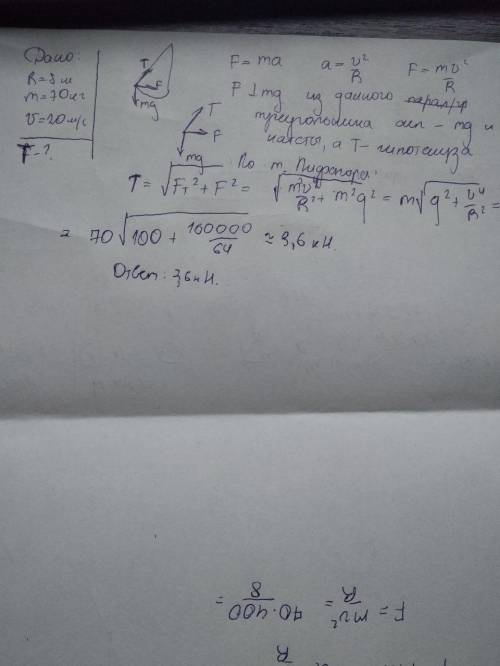 Дано:
R = 8 м
m = 70 кг
v = 20 м/с
F - ?
T
F
mg
T
F
mg
F = ma a = v²/R F = mv²/R
F ⊥ mg из данного
треугольника сил - mg и
катеты, а T - гипотенуза
По т. Пифагора:
T = √(Fт² + F²) = √(m²v⁴/R² + m²g²) = m√(g² + v⁴/R²) =
= 70 √(100 + 160000/64) ≈ 3,6 кН.
Ответ: 3,6 кН.
F = mv²/R = 70·400/8 =
R